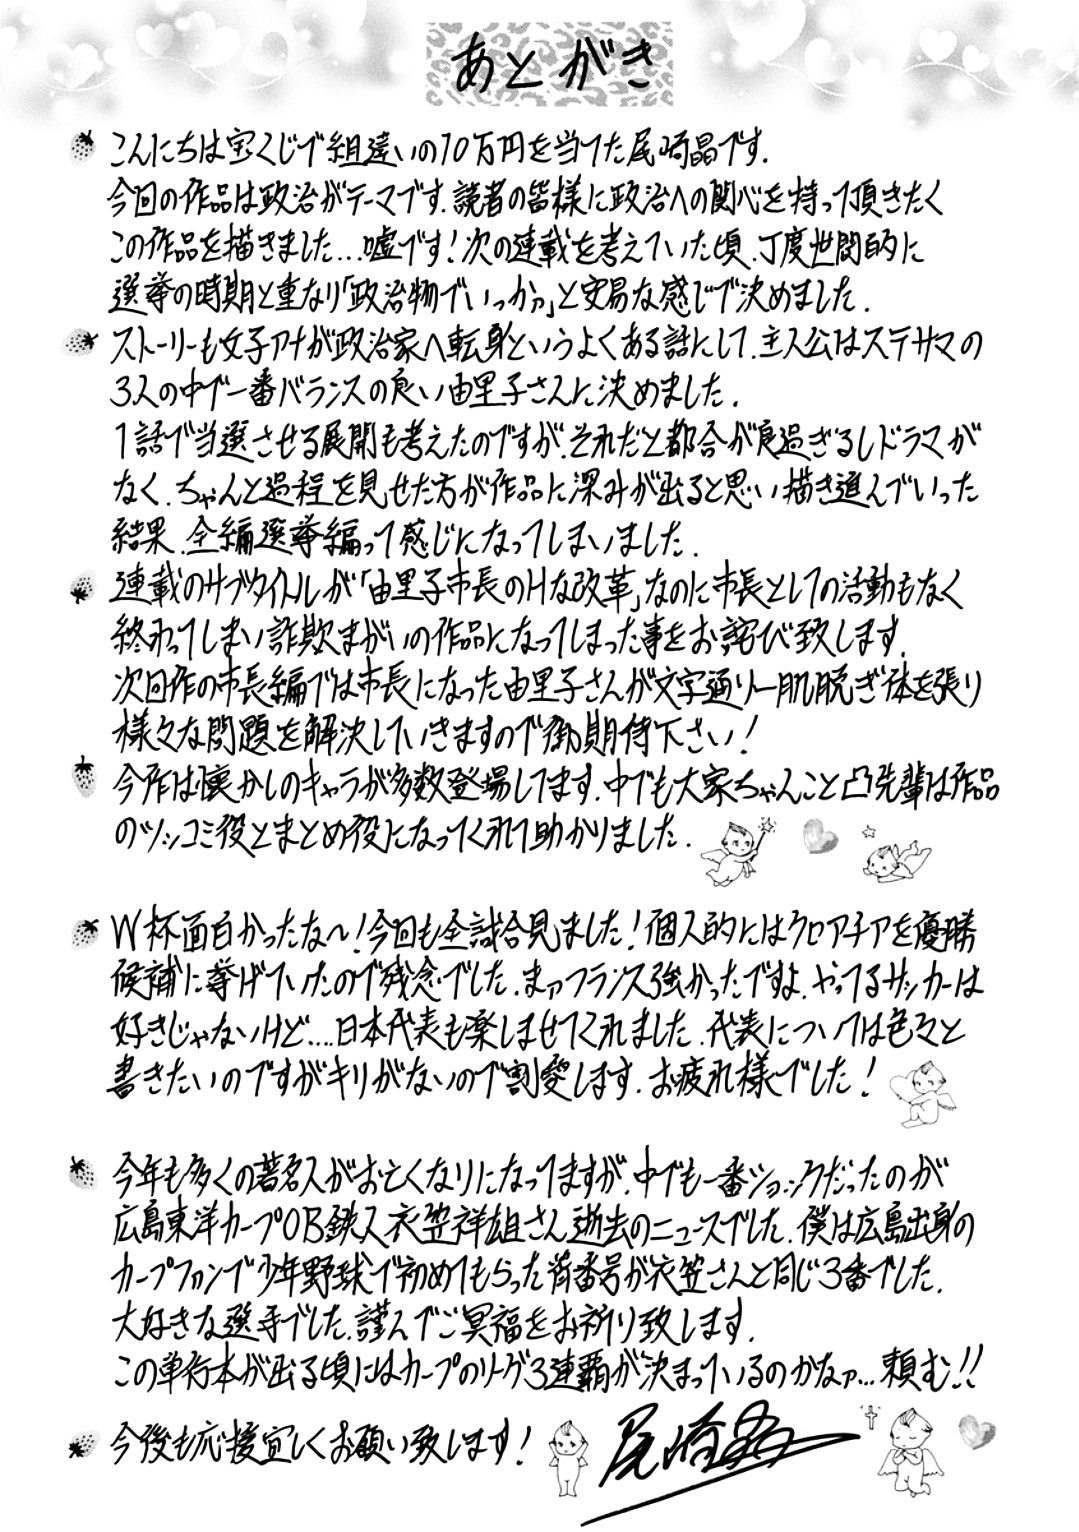 あとがき
こんにちは宝くじで組違いの10万円を当てた尾崎晶です.
今回の作品は政治がテーマです.読者の皆様に政治への関心を持って頂きたく
この作品を描きました...嘘です!次の連載を考えていた頃.丁度世間的に
選挙の時期と重なり「政治物でいっか」と安易な感じで決めました.
ストーリーも女子アナが政治家へ転身というよくある話にして.主人公はステサマの
3人の中で一番バランスの良い由里子さんに決めました.
1話で当選させる展開も考えたのですが.それだと都合が良過ぎるしドラマが
なく.ちゃんと過程を見せた方が作品に深みが出ると思い描き進んでいった
結果.全編選挙編って感じになってしまいました.
連載のサブタイトルが「由里子市長のHな改革」なのに市長としての活動もなく
終わってしまい詐欺まがいの作品になってしまった事をお詫び致します.
次回作の市長編では市長になった由里子さんが文字通り一肌脱ぎ体を張り
様々な問題を解決していきますので御期待下さい!
今作は懐かしのキャラが多数登場してます.中でも大家ちゃんこと凸先輩は作品
のツッコミ役とまとめ役になってくれて助かりました.
W杯面白かったな〜!今回も全試合見ました!個人的にはクロアチアを優勝
候補に挙げていたので残念でした.まァフランス強かったですよ.やってるサッカーは
好きじゃないけど....日本代表も楽しませてくれました.代表については色々と
書きたいのですがキリがないので割愛します.お疲れ様でした!
今年も多くの著名人がお亡くなりになってますが.中でも一番ショックだったのが
広島東洋カープOB鉄人衣笠祥雄さん逝去のニュースでした.僕は広島出身の
カープファンで少年野球で初めてもらった背番号が衣笠さんと同じ3番でした.
大好きな選手でした.謹んでご冥福をお祈り致します.
この単行本が出る頃にはカープのリーグ3連覇が決まっているのかなァ...頼む!!
今後も応援宜しくお願い致します!
尾崎晶